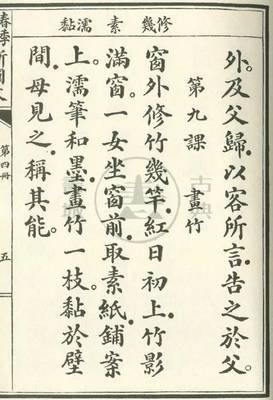 修幾　素　濡黏
外。及父歸。以客所言。告之於父。
第九課　畫竹
窗外修竹幾竿。紅日初上。竹影
滿窗。一女坐窗前。取素紙。鋪案
上。濡筆和墨。畫竹一枝。黏於壁
間。母見之。稱其能。
第四冊
五